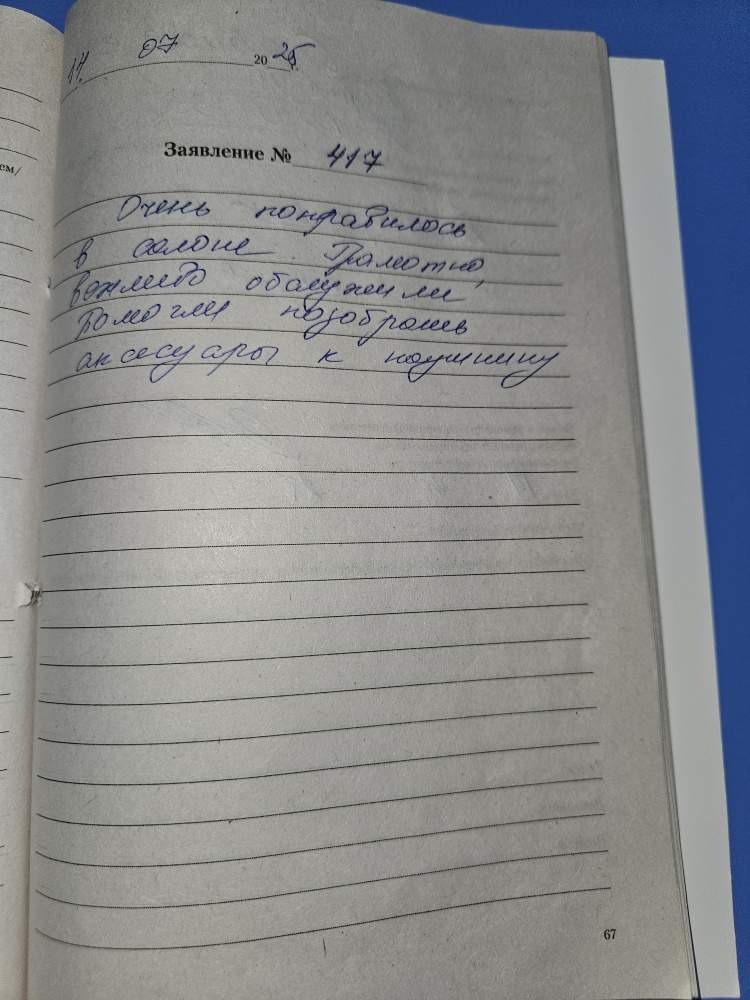 14. 07 2025 г.
ем/
Заявление № 417
Очень понравилось
в салоне. Грамотно,
вежливо обслужили
Помогли подобрать
аксесуары к наушнику
67